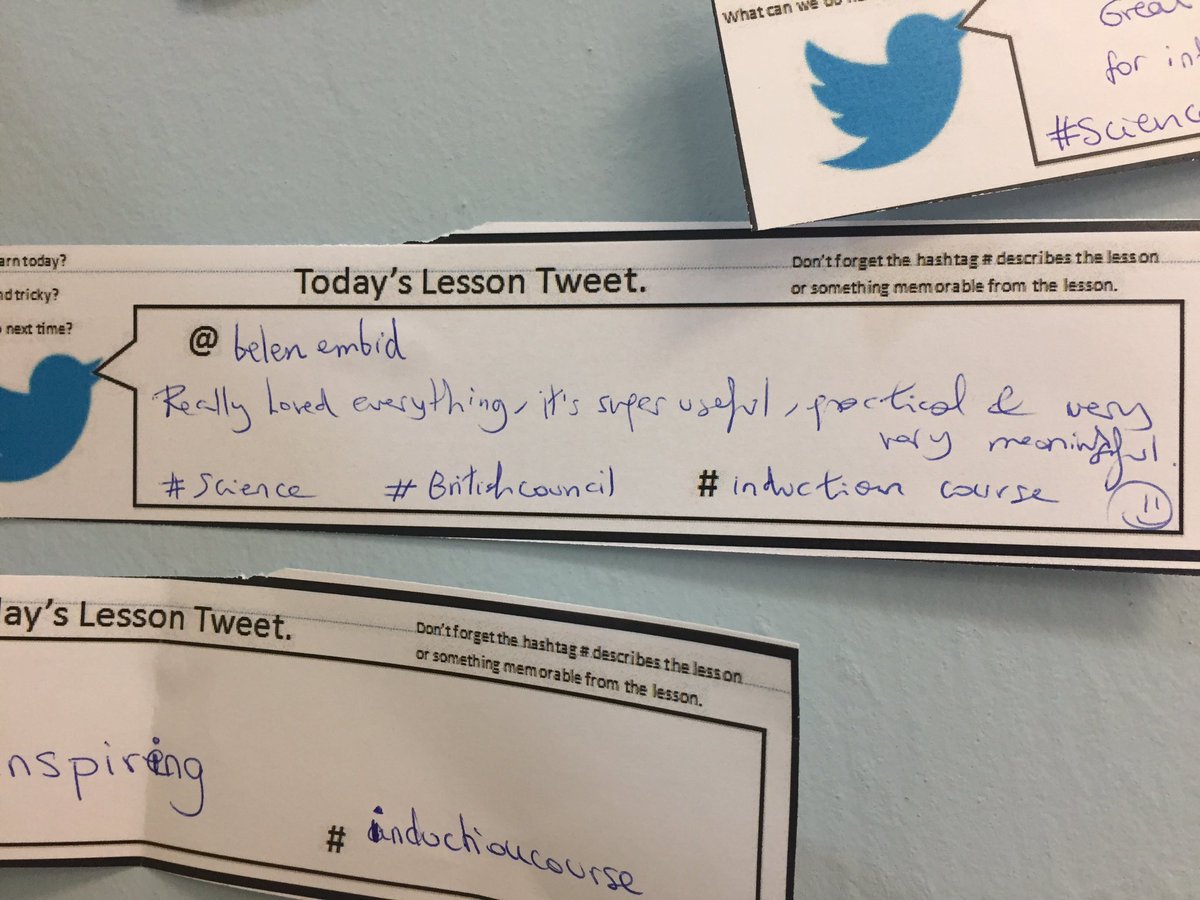 What can we do
Great
for int
#Science
arn today?
nd tricky?
next time?
Today's Lesson Tweet.
Don't forget the hashtag # describes the lesson
or something memorable from the lesson.
@ belen embid
Really Loved everything, it's super useful, practical & very
very meaningful.
#Science #Britishcouncil # induction course
ay's Lesson Tweet.
Don't forget the hashtag # describes the lesson
or something memorable from the lesson.
nspiring
# inductioncourse